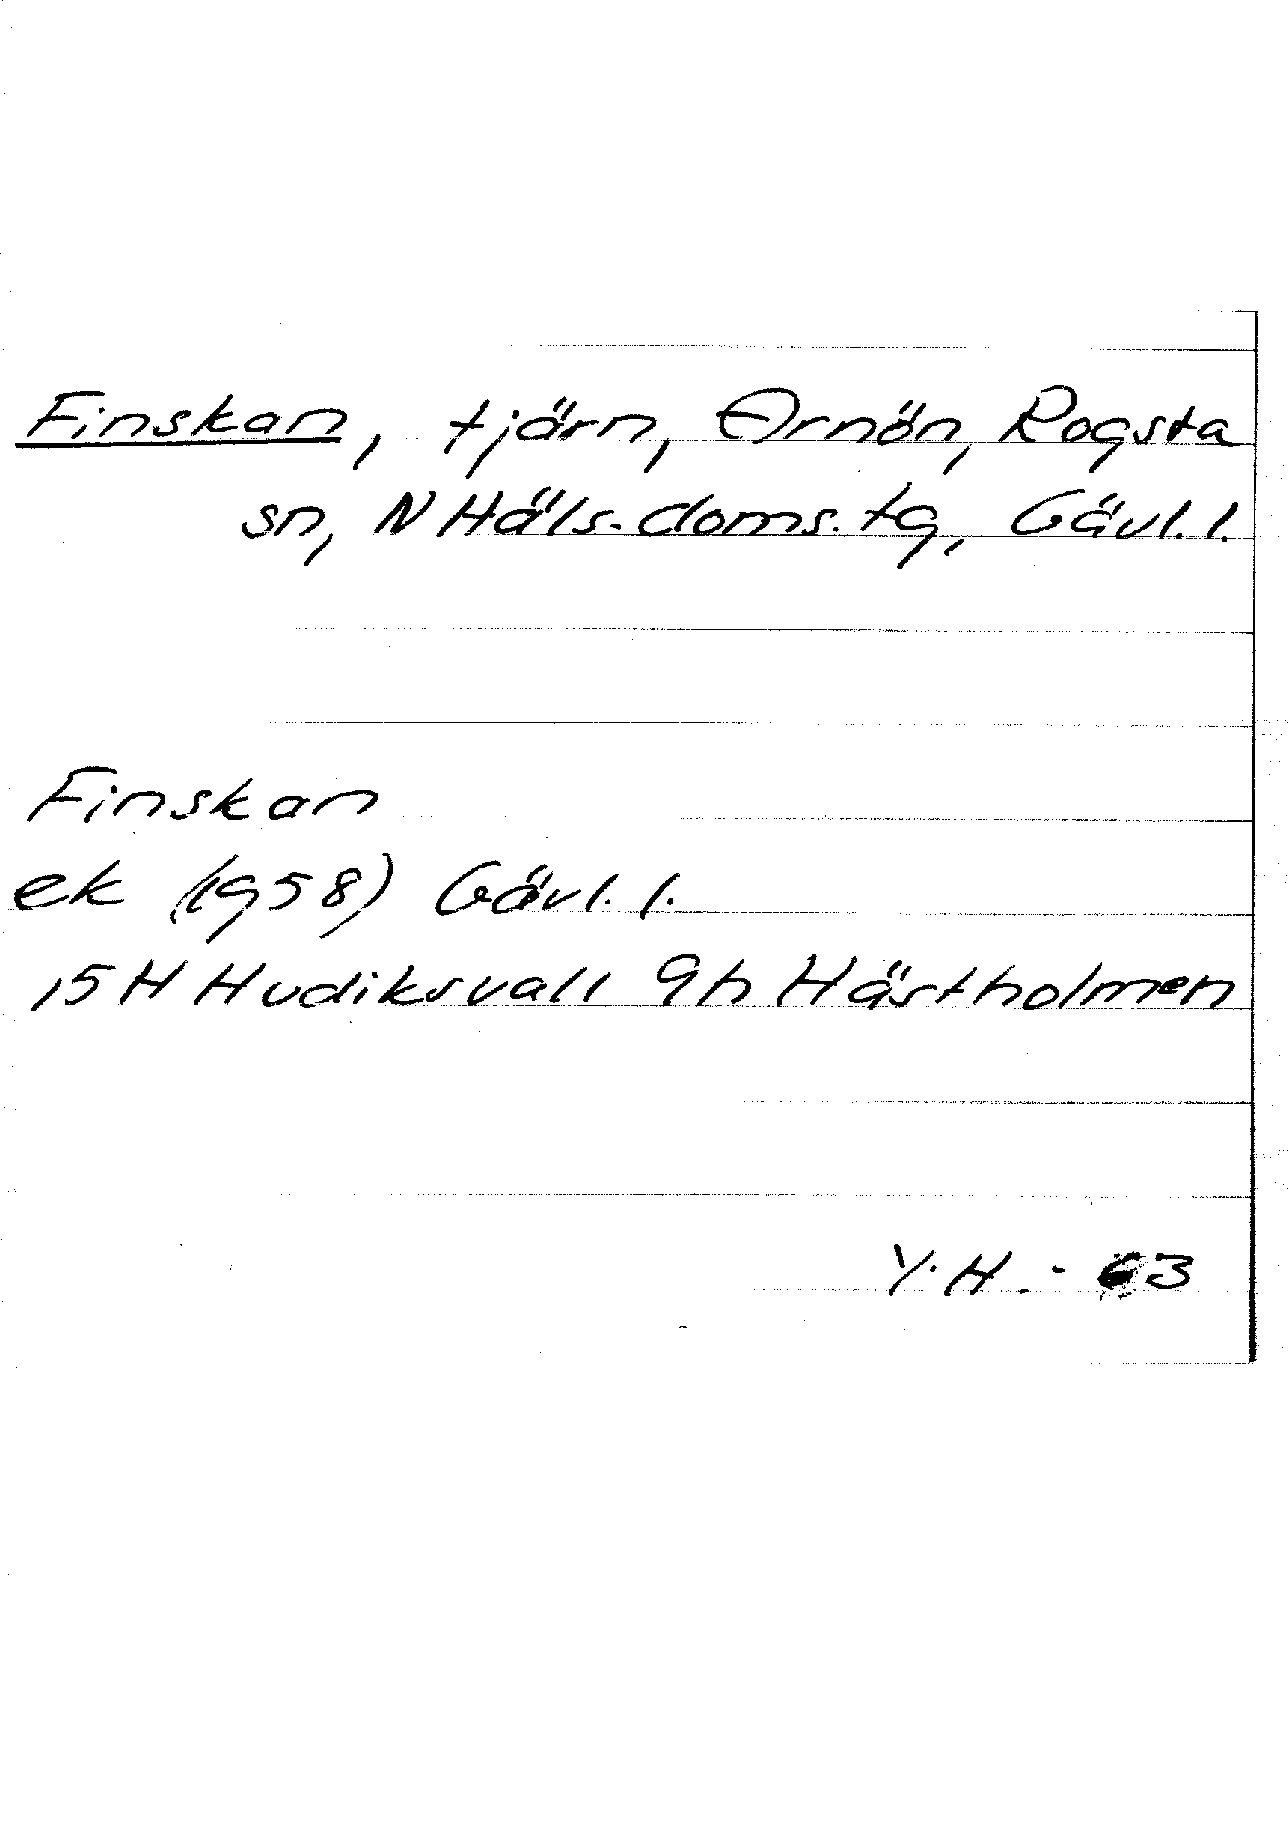 Finskan, tjärn, Arnön, Rogsta
sn, N Häls. doms. tg, Gävl. l.
Finskan
ek (1958) Gävl. l.
15 H Hudiksvall 9h Hästholmen
Y. H. - 63